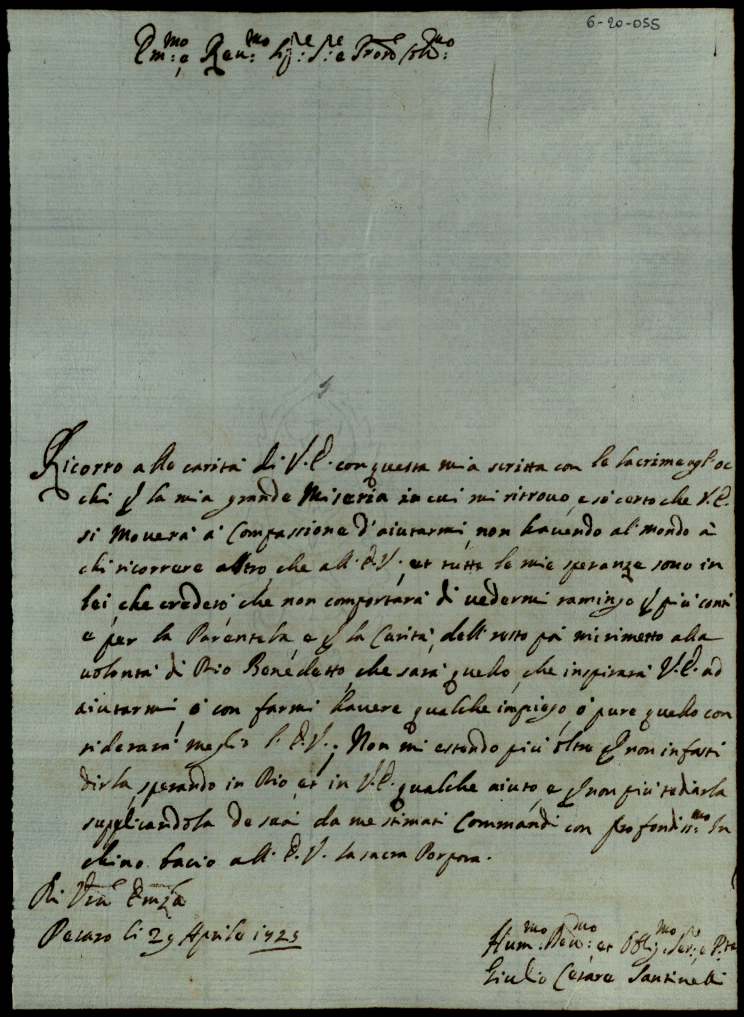 6-20-055
Em:mo e Reu:mo Sig:re S:re e Pron Col:mo
Ricorro alla carità di V.E. con questa mia scritta con le lacrime agl'oc
chi p la mia grande Miseria in cui mi ritrouo, e so' certo che V.E.
si Mouerà à Compassione d'aiutarmi, non hauendo al mondo à
chi ricorrere altro, che all'E.V., et tutte le mie speranze sono in
lei che crederò che non comportarà di uedermi ramingo p più conti
e per la Parentela, e p la Carità, dell resto poi mi rimetto alla
uolontà di Dio Benedetto che sarà quello, che inspirarà V.E. ad
aiutarmi, ò con farmi hauere qualche impiego, ò pure quello con
siderarà meglio l'E.V.; Non mi estendo più oltre p non infasti
dirla, sperando in Dio, et in V.E. qualche aiuto, e p non più tediarla
supplicandola de suoi da me stimati Commandi con profondiss:mo In
chino bacio all'E.V. la sacra Porpora.
Di Vra Emza
Pesaro li 29 Aprile 1725
Hum:mo Deu:mo et Obblig:mo Ser:e e P:te
Giulio Cesare Santinelli